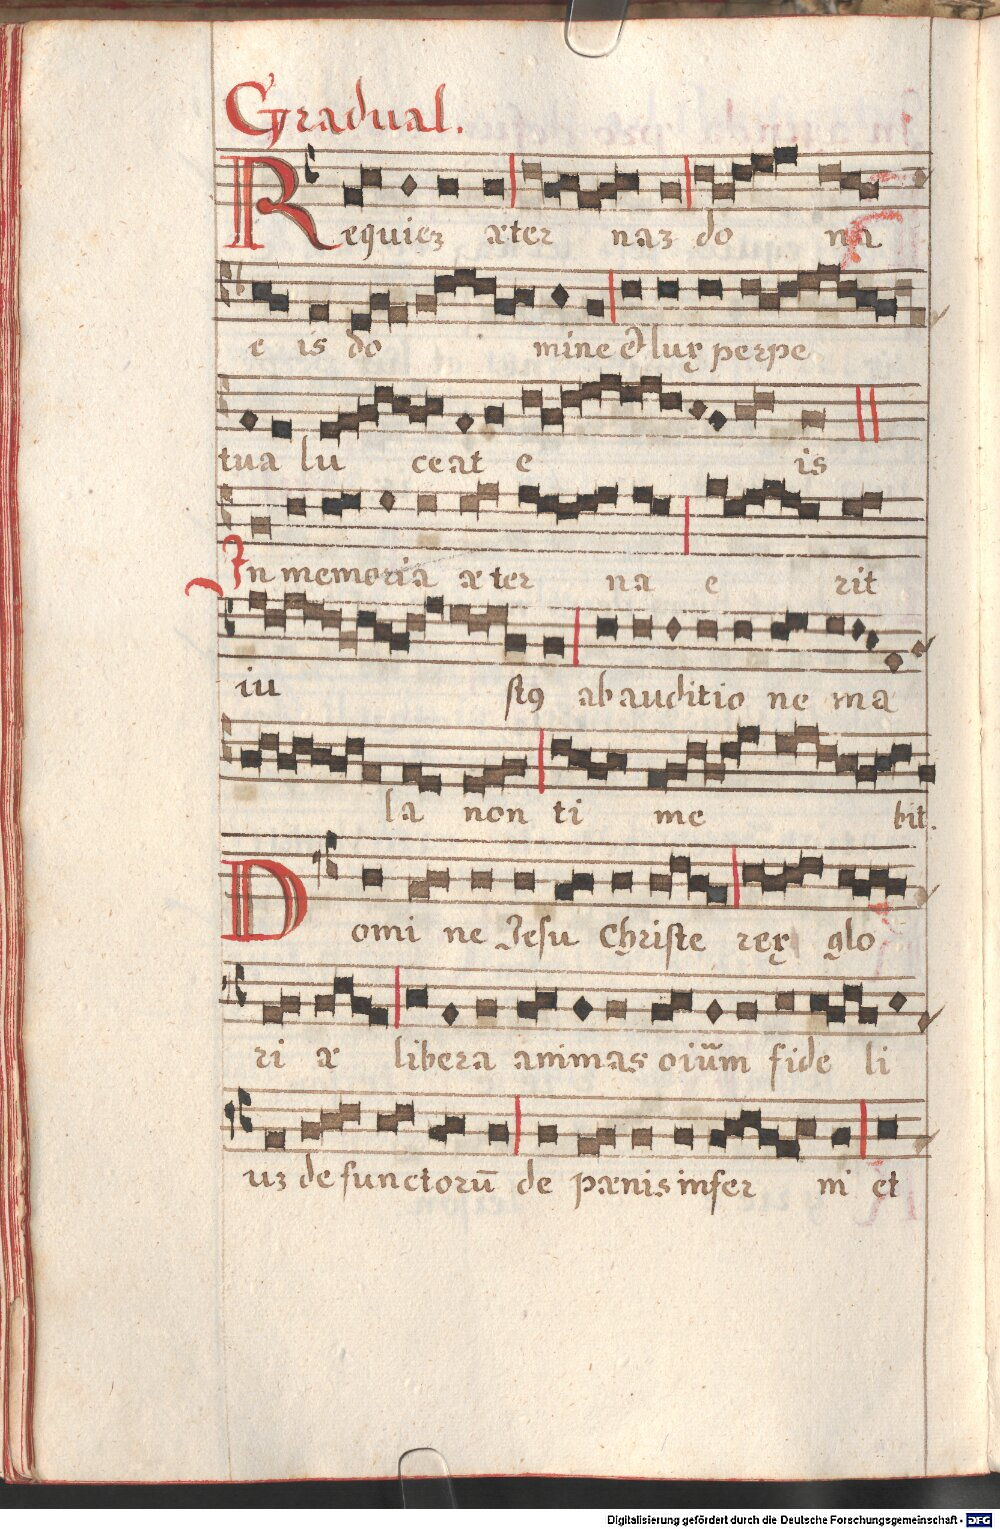 Gradual.
Requiez æter naz do na
e is do mine et lux perpe
tua lu ceat e is
In memoria æ ter na e rit
iu stꝰ ab auditio ne ma
la non ti me bit.
Domi ne Jesu Christe rex glo
ri æ libera animas oiūm fide li
uz defunctorū de pænis infer ni et
Digitalisierung gefördert durch die Deutsche Forschungsgemeinschaft - DFG